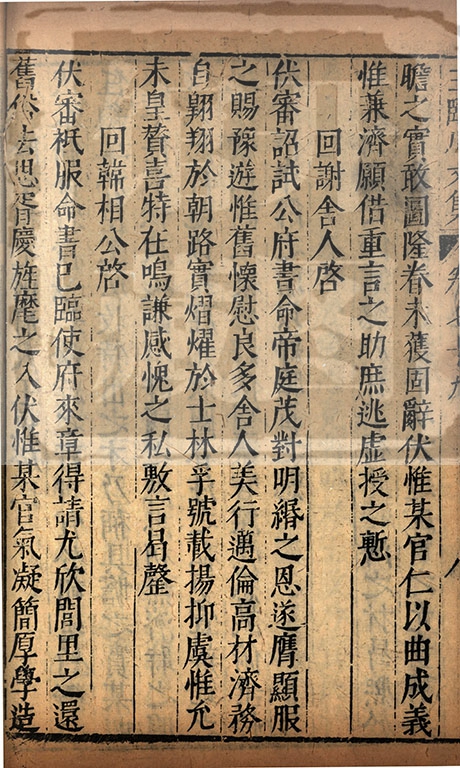 瞻之實敢圖隆眷未獲固辭伏惟某官仁以曲成義
惟兼濟願借重言之助庶逃虛授之慙
回謝舍人啓
伏審詔試公府書命帝庭茂對明緡之恩遂膺顯服
之賜豫遊惟舊懷慰良多舍人美行邁倫高材濟務
自翺翔於朝路實熠燿於士林孚號載揚抑虞惟允
未皇贄喜特在鳴謙感愧之私敷言曷罄
回韓相公啓
伏審祇服命書已臨使府來章得請尤欣閭里之還
舊俗去思胥慶旌麾之入伏惟某官氣凝簡厚學造